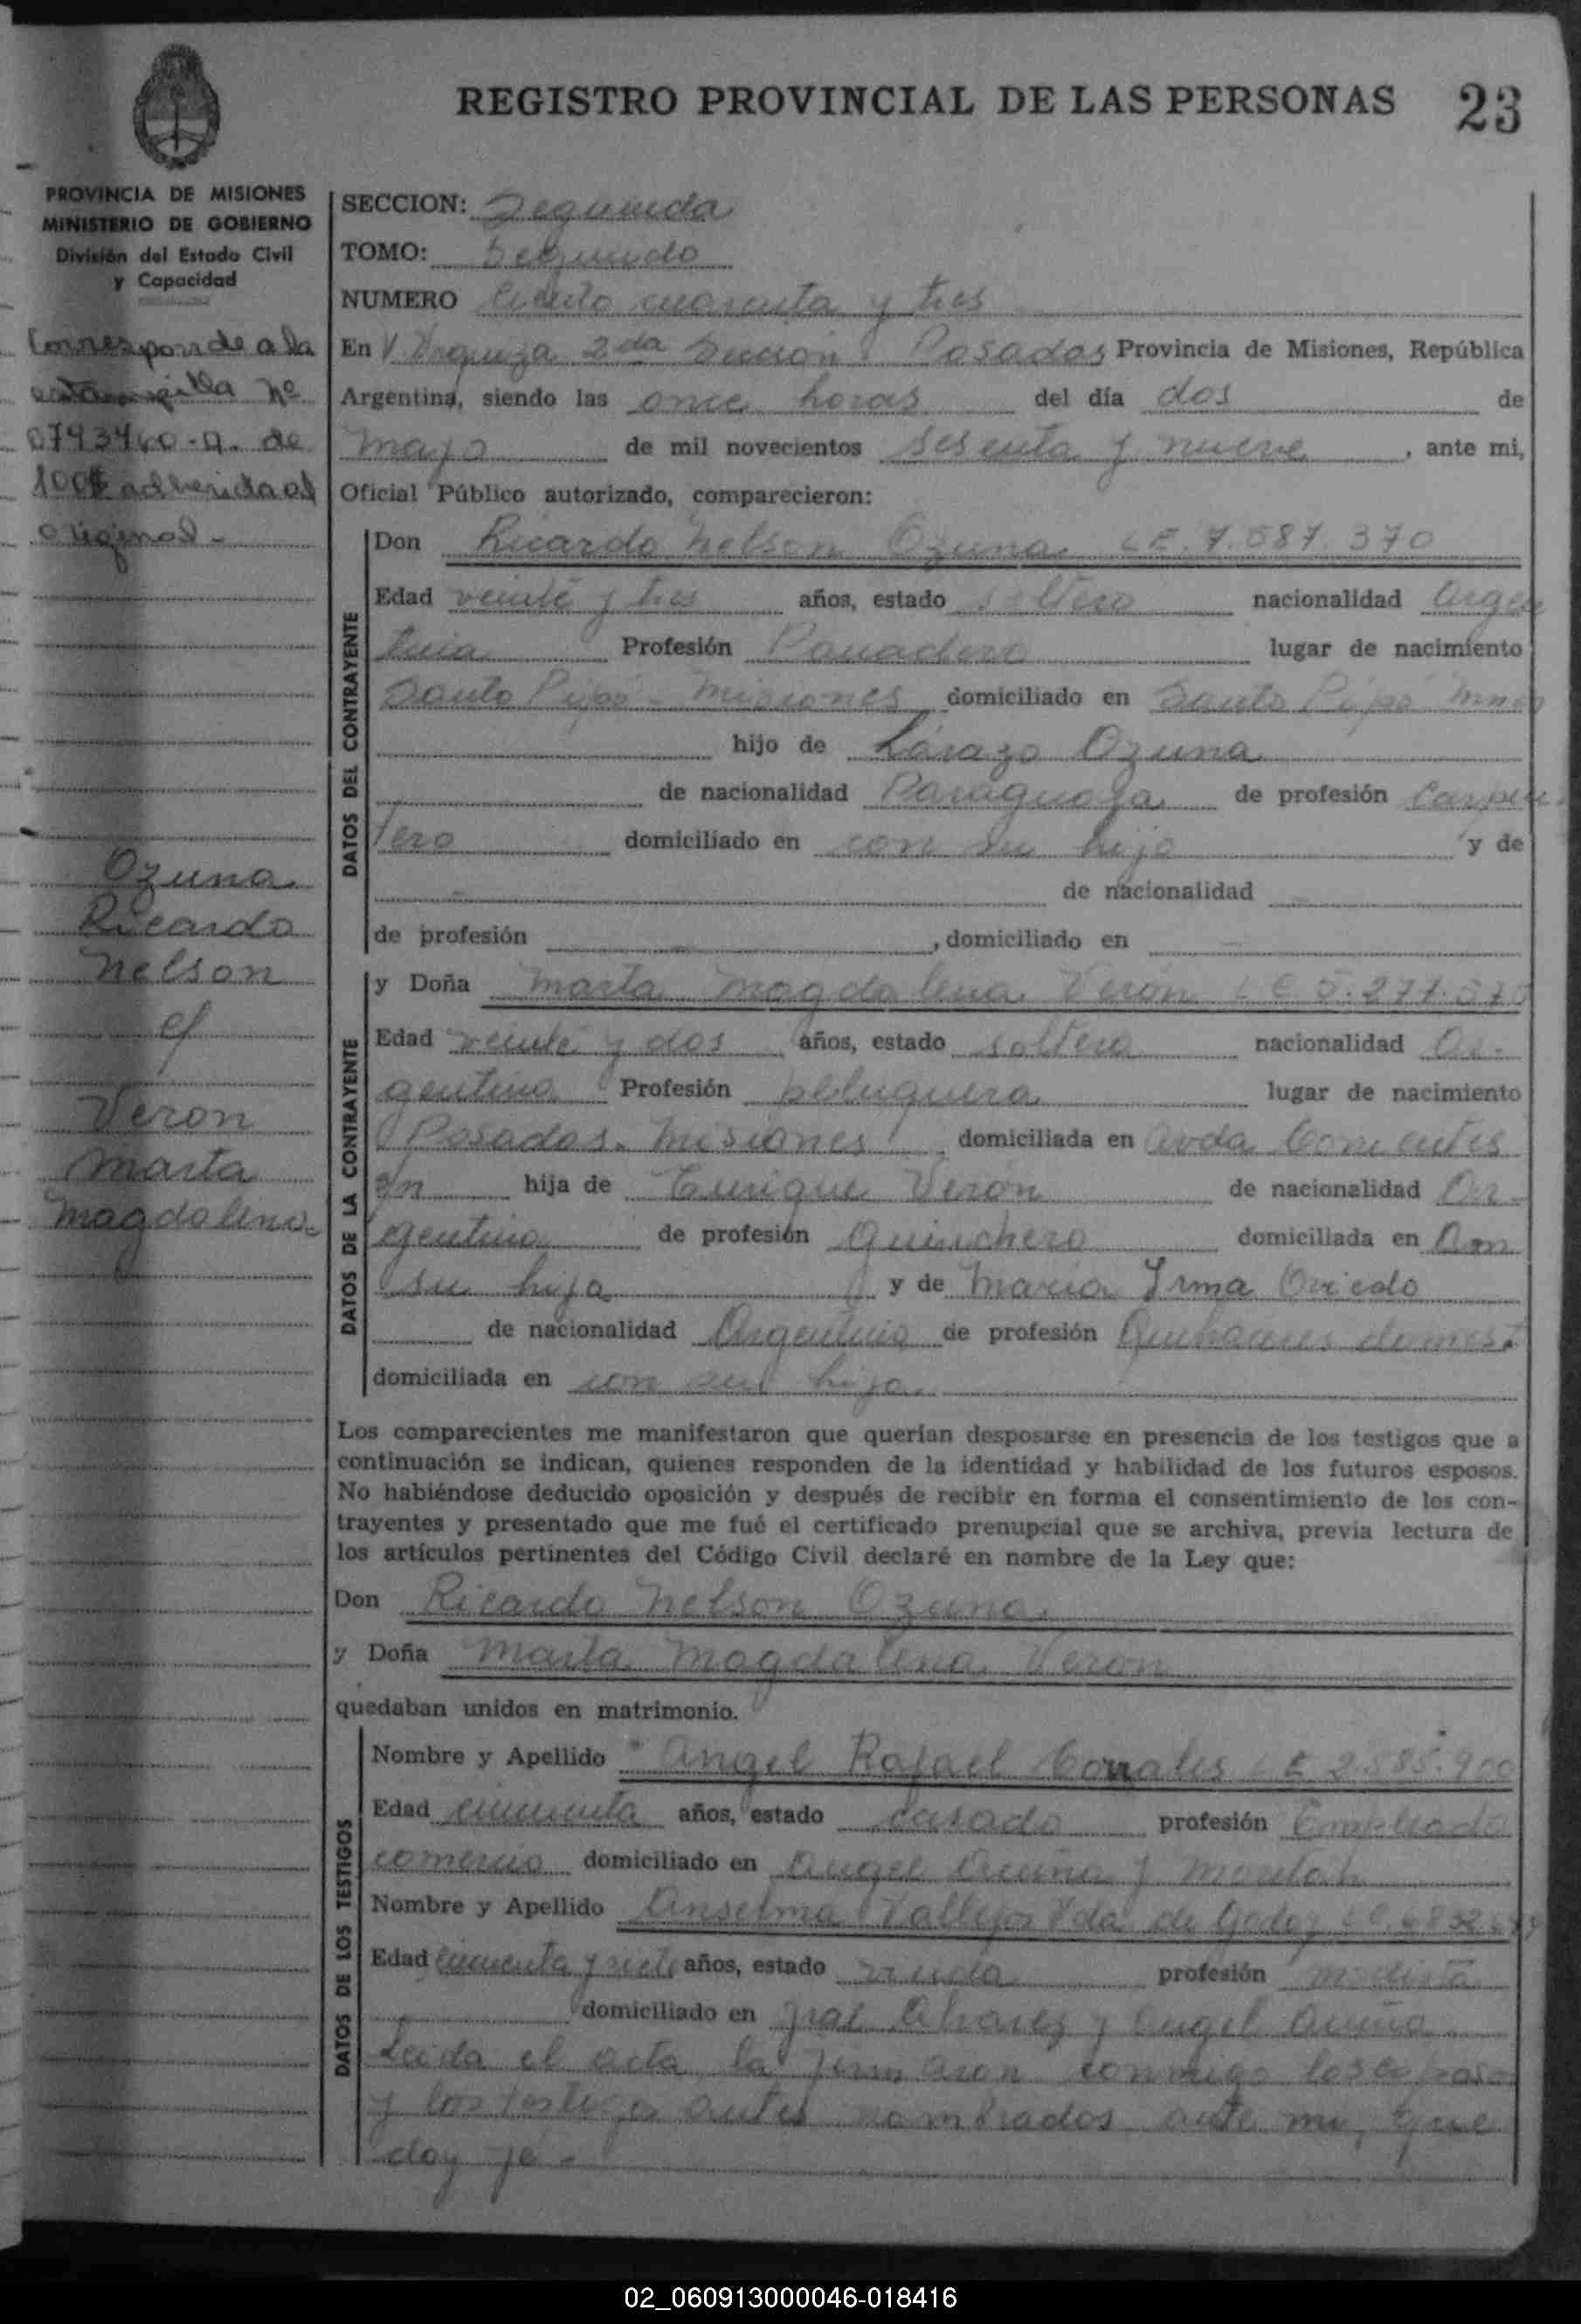 REGISTRO PROVINCIAL DE LAS PERSONAS 23
PROVINCIA DE MISIONES
MINISTERIO DE GOBIERNO
División del Estado Civil
y Capacidad
Corresponde a la
estampilla Nº
de
100$ adherida al
original -
Ozuna
Ricardo
Nelson
c/
Veron
Marta
Magdalena
SECCION: Segunda
TOMO: Segundo
NUMERO Ciento cuarenta y tres
En V. Urquiza 2da Sección Posadas Provincia de Misiones, República
Argentina, siendo las once horas del día dos de
mayo de mil novecientos sesenta y nueve, ante mi,
Oficial Público autorizado, comparecieron:
DATOS DEL CONTRAYENTE
Don Ricardo Nelson Ozuna LE. 7.587.370
Edad veinte y tres años, estado soltero nacionalidad Argen
tina Profesión Panadero lugar de nacimiento
Santo Pipó - Misiones domiciliado en Santo Pipó Mnes
hijo de Lázaro Ozuna
de nacionalidad Paraguaya de profesión Carpin
tero domiciliado en con su hijo y de
- de nacionalidad
de profesión - , domiciliado en -
DATOS DE LA CONTRAYENTE
y Doña Marta Magdalena Verón LC 5.277.
Edad veinte y dos años, estado soltera nacionalidad Ar-
gentina Profesión peluquera lugar de nacimiento
Posadas. Misiones domiciliada en Avda Corrientes
s/n hija de Enrique Verón de nacionalidad Ar-
gentina de profesión Quinchero domiciliada en Con
su hija y de María Irma Oviedo
de nacionalidad Argentina de profesión Quehaceres domést.
domiciliada en con su hija
Los comparecientes me manifestaron que querían desposarse en presencia de los testigos que a
continuación se indican, quienes responden de la identidad y habilidad de los futuros esposos.
No habiéndose deducido oposición y después de recibir en forma el consentimiento de los con-
trayentes y presentado que me fué el certificado prenupcial que se archiva, previa lectura de
los artículos pertinentes del Código Civil declaré en nombre de la Ley que:
Don Ricardo Nelson Ozuna
y Doña Marta Magdalena Veron
quedaban unidos en matrimonio.
DATOS DE LOS TESTIGOS
Nombre y Apellido Angel Rafael Corrales LE 2.585.900
Edad cincuenta años, estado casado profesión Empleado
comercio domiciliado en Angel Acuña y
Nombre y Apellido Anselma Vallejos Vda de Godoy
Edad cincuenta y siete años, estado viuda profesión modista
domiciliado en Gral Alvarez y Angel Acuña
Leida el acta, la firmaron conmigo los esposos
y los testigos antes nombrados ante mi, que
doy fé -
02_060913000046-018416